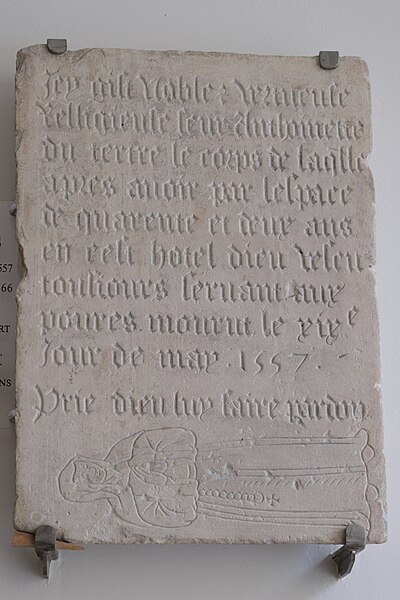 Icy gist Noble & vertueuse
Relligieuse seur Anthoinette
du tertre le corps de laqlle
apres auoir par lespace
de quarente et deux ans
en cest hotel dieu vescu
tousiours seruant aux
poures mourut le xixe
Jour de may . 1557 .
Prie dieu luy faire pardon
557
66
RT
NS